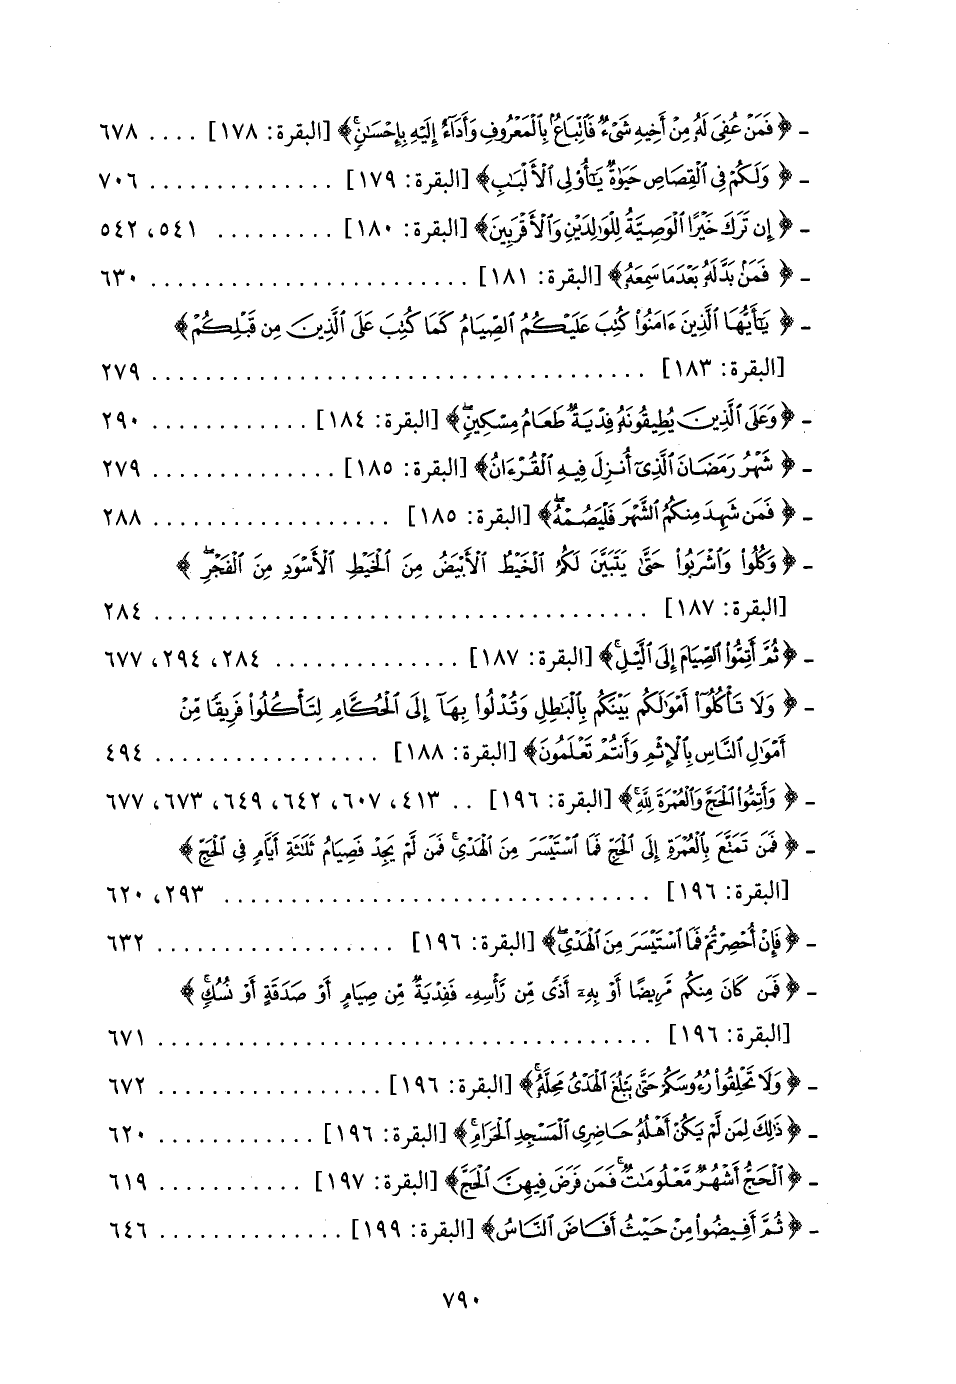 - ﴿ فَمَنْ عُفِىَ لَهُۥ مِنْ أَخِيهِ شَىْءٌ فَٱتِّبَاعٌۢ بِٱلْمَعْرُوفِ وَأَدَآءٌ إِلَيْهِ بِإِحْسَٰنٍۗ﴾ [البقرة: ١٧٨] .... ٦٧٨
- ﴿ وَلَكُمْ فِى ٱلْقِصَاصِ حَيَوٰةٌ يَٰٓأُو۟لِى ٱلْأَلْبَٰبِ﴾ [البقرة: ١٧٩] .............. ٧٠٦
- ﴿ إِن تَرَكَ خَيْرًا ٱلْوَصِيَّةُ لِلْوَٰلِدَيْنِ وَٱلْأَقْرَبِينَ﴾ [البقرة: ١٨٠] ......... ٥٤١، ٥٤٢
- ﴿ فَمَنۢ بَدَّلَهُۥ بَعْدَمَا سَمِعَهُۥ﴾ [البقرة: ١٨١] ........................ ٦٣٠
- ﴿ يَٰٓأَيُّهَا ٱلَّذِينَ ءَامَنُوا۟ كُتِبَ عَلَيْكُمُ ٱلصِّيَامُ كَمَا كُتِبَ عَلَى ٱلَّذِينَ مِن قَبْلِكُمْ﴾
[البقرة: ١٨٣] ..................................... ٢٧٩
- ﴿وَعَلَى ٱلَّذِينَ يُطِيقُونَهُۥ فِدْيَةٌ طَعَامُ مِسْكِينٍۖ﴾ [البقرة: ١٨٤] ............ ٢٩٠
- ﴿ شَهْرُ رَمَضَانَ ٱلَّذِىٓ أُنزِلَ فِيهِ ٱلْقُرْءَانُ﴾ [البقرة: ١٨٥] .............. ٢٧٩
- ﴿ فَمَن شَهِدَ مِنكُمُ ٱلشَّهْرَ فَلْيَصُمْهُۖ﴾ [البقرة: ١٨٥] .................. ٢٨٨
- ﴿ وَكُلُوا۟ وَٱشْرَبُوا۟ حَتَّىٰ يَتَبَيَّنَ لَكُمُ ٱلْخَيْطُ ٱلْأَبْيَضُ مِنَ ٱلْخَيْطِ ٱلْأَسْوَدِ مِنَ ٱلْفَجْرِۖ ﴾
[البقرة: ١٨٧] ..................................... ٢٨٤
- ﴿ثُمَّ أَتِمُّوا۟ ٱلصِّيَامَ إِلَى ٱلَّيْلِۚ﴾ [البقرة: ١٨٧] .............. ٢٨٤، ٢٩٤، ٦٧٧
- ﴿ وَلَا تَأْكُلُوٓا۟ أَمْوَٰلَكُم بَيْنَكُم بِٱلْبَٰطِلِ وَتُدْلُوا۟ بِهَآ إِلَى ٱلْحُكَّامِ لِتَأْكُلُوا۟ فَرِيقًا مِّنْ
أَمْوَٰلِ ٱلنَّاسِ بِٱلْإِثْمِ وَأَنتُمْ تَعْلَمُونَ﴾ [البقرة: ١٨٨] ................. ٤٩٤
- ﴿ وَأَتِمُّوا۟ ٱلْحَجَّ وَٱلْعُمْرَةَ لِلَّهِۚ﴾ [البقرة: ١٩٦] .. ٤١٣، ٦٠٧، ٦٤٢، ٦٤٩، ٦٧٣، ٦٧٧
- ﴿ فَمَن تَمَتَّعَ بِٱلْعُمْرَةِ إِلَى ٱلْحَجِّ فَمَا ٱسْتَيْسَرَ مِنَ ٱلْهَدْىِۚ فَمَن لَّمْ يَجِدْ فَصِيَامُ ثَلَٰثَةِ أَيَّامٍ فِى ٱلْحَجِّ ﴾
[البقرة: ١٩٦] ................................ ٢٩٣، ٦٢٠
- ﴿فَإِنْ أُحْصِرْتُمْ فَمَا ٱسْتَيْسَرَ مِنَ ٱلْهَدْىِۖ﴾ [البقرة: ١٩٦] .................. ٦٣٢
- ﴿فَمَن كَانَ مِنكُم مَّرِيضًا أَوْ بِهِۦٓ أَذًى مِّن رَّأْسِهِۦ فَفِدْيَةٌ مِّن صِيَامٍ أَوْ صَدَقَةٍ أَوْ نُسُكٍۚ ﴾
[البقرة: ١٩٦] ..................................... ٦٧١
- ﴿ وَلَا تَحْلِقُوا۟ رُءُوسَكُمْ حَتَّىٰ يَبْلُغَ ٱلْهَدْىُ مَحِلَّهُۥۚ﴾ [البقرة: ١٩٦] ................ ٦٧٢
- ﴿ ذَٰلِكَ لِمَن لَّمْ يَكُنْ أَهْلُهُۥ حَاضِرِى ٱلْمَسْجِدِ ٱلْحَرَامِۚ﴾ [البقرة: ١٩٦] ............ ٦٢٠
- ﴿ ٱلْحَجُّ أَشْهُرٌ مَّعْلُومَٰتٌۚ فَمَن فَرَضَ فِيهِنَّ ٱلْحَجَّ﴾ [البقرة: ١٩٧] ........... ٦١٩
- ﴿ ثُمَّ أَفِيضُوا۟ مِنْ حَيْثُ أَفَاضَ ٱلنَّاسُ﴾ [البقرة: ١٩٩] .............. ٦٤٦
٧٩٠